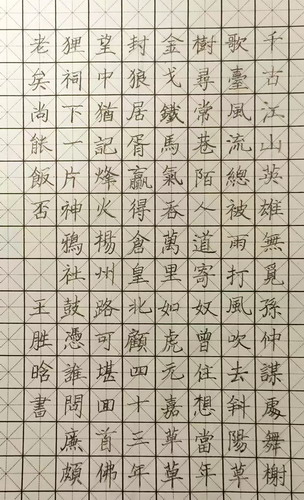 千古江山英雄無覓孫仲謀處舞榭
歌臺風流總被雨打風吹去斜陽草
樹尋常巷陌人道寄奴曾住想當年
金戈鐵馬氣吞萬里如虎元嘉草草
封狼居胥贏得倉皇北顧四十三年
望中猶記烽火揚州路可堪囬首佛
狸祠下一片神鴉社鼓憑誰問廉頗
老矣尚能飯否
王胜晗書